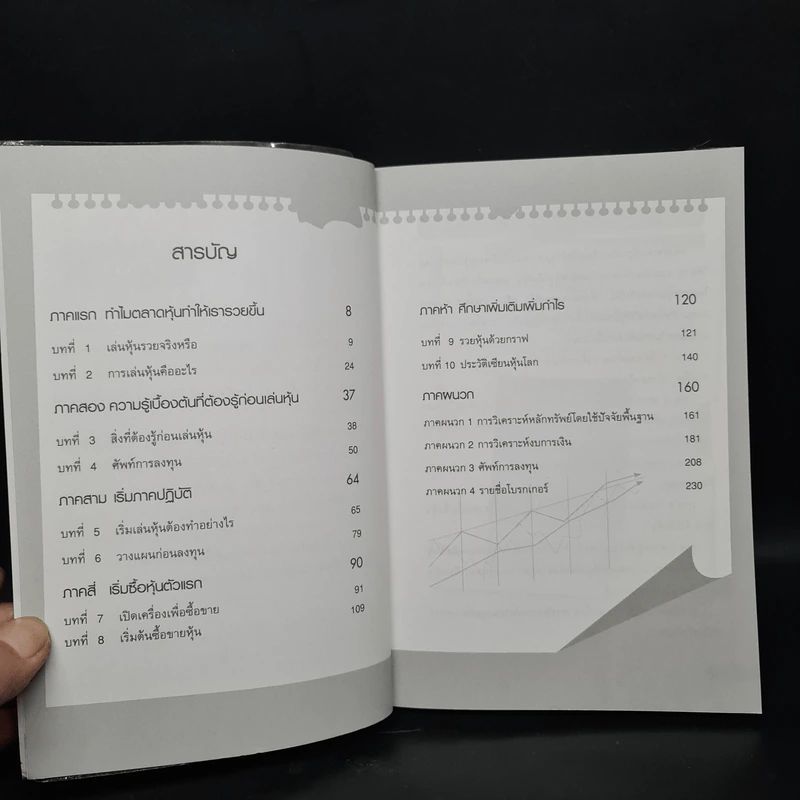 สารบัญ
ภาคแรก ทำไมตลาดหุ้นทำให้เรารวยขึ้น 8
บทที่ 1 เล่นหุ้นรวยจริงหรือ 9
บทที่ 2 การเล่นหุ้นคืออะไร 24
ภาคสอง ความรู้เบื้องต้นที่ต้องรู้ก่อนเล่นหุ้น 37
บทที่ 3 สิ่งที่ต้องรู้ก่อนเล่นหุ้น 38
บทที่ 4 ศัพท์การลงทุน 50
ภาคสาม เริ่มภาคปฏิบัติ 64
บทที่ 5 เริ่มเล่นหุ้นต้องทำอย่างไร 65
บทที่ 6 วางแผนก่อนลงทุน 79
ภาคสี่ เริ่มซื้อหุ้นตัวแรก 90
บทที่ 7 เปิดเครื่องเพื่อซื้อขาย 91
บทที่ 8 เริ่มต้นซื้อขายหุ้น 109
ภาคห้า ศึกษาเพิ่มเติมเพิ่มกำไร 120
บทที่ 9 รวยหุ้นด้วยกราฟ 121
บทที่ 10 ประวัติเซียนหุ้นโลก 140
ภาคผนวก 160
ภาคผนวก 1 การวิเคราะห์หลักทรัพย์โดยใช้ปัจจัยพื้นฐาน 161
ภาคผนวก 2 การวิเคราะห์งบการเงิน 181
ภาคผนวก 3 ศัพท์การลงทุน 208
ภาคผนวก 4 รายชื่อโบรกเกอร์ 230